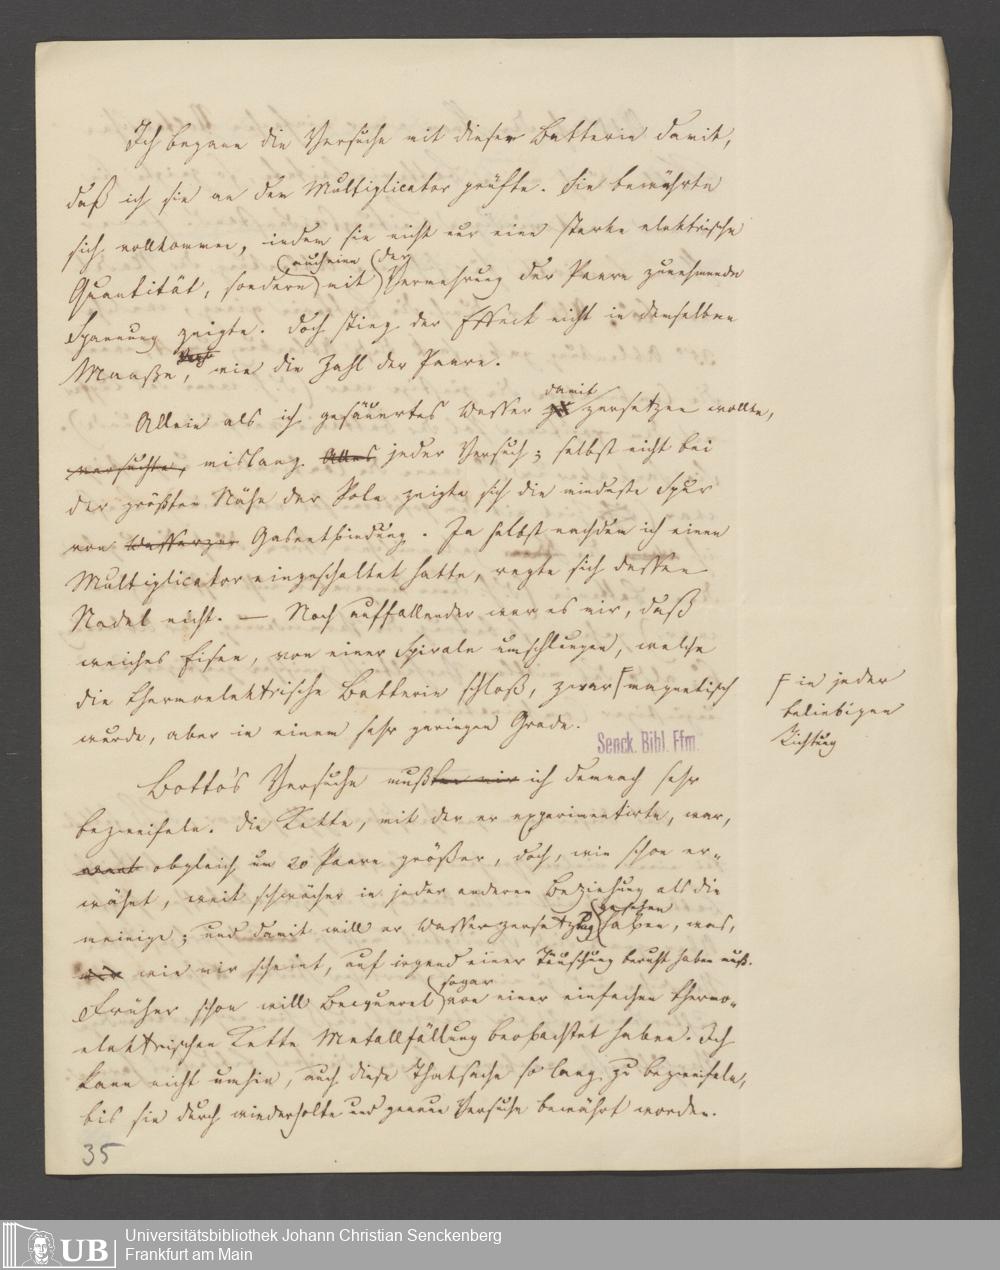 Ich begann die Versuche mit dieser Batterie damit,
daß ich sie an den Multiplicator prüfte. Sie bewährte
sich vollkommen, indem sie nicht nur eine starke elektrische
auch eine der
Quantität, sondern mit Vermehrung der Paare zunehmende
Spannung zeigte. Doch stieg der Effect nicht in demselben
Maaße, wie die Zahl der Paare.
damit
Allein als ich gesäuertes Wasser zersetzen wollte,
versuchte, mislang Alles jeder Versuch; selbst nicht bei
der größten Nähe der Pole zeigte sich die mindeste Spur
von Wasserzer Gasentbindung. Ja selbst nachdem ich einen
Multiplicator eingeschaltet hatte, regte sich dessen
Nadel nicht. — Noch auffallender war es mir, daß
weiches Eisen, von einer Spirale umschlungen, welche
die thermoelektrische Batterie schloß, zwar magnetisch
in jeder
beliebigen
Richtung
wurde, aber in einem sehr geringen Grade.
Senck. Bibl. Ffm.
Botto's Versuche mußten mir ich demnach sehr
bezweifeln. Die Kette, mit der er experimentirte, war,
obgleich um 20 Paare größer, doch, wie schon er-
wähnt, weit schwächer in jeder anderen Beziehung als die
gesehen
meinige; und damit will er Wasserzersetzung haben, was,
wie mir scheint, auf irgend einer Täuschung beruht haben muß.
sogar
Früher schon will Becquerel von einer einfachen thermo-
elektrischen Kette Metallfällung beobachtet haben. Ich
kann nicht umhin, auch diese Thatsache so lang zu bezweifeln,
bis sie durch wiederholte und genaue Versuche bewährt worden.
35
UB
Universitätsbibliothek Johann Christian Senckenberg
Frankfurt am Main